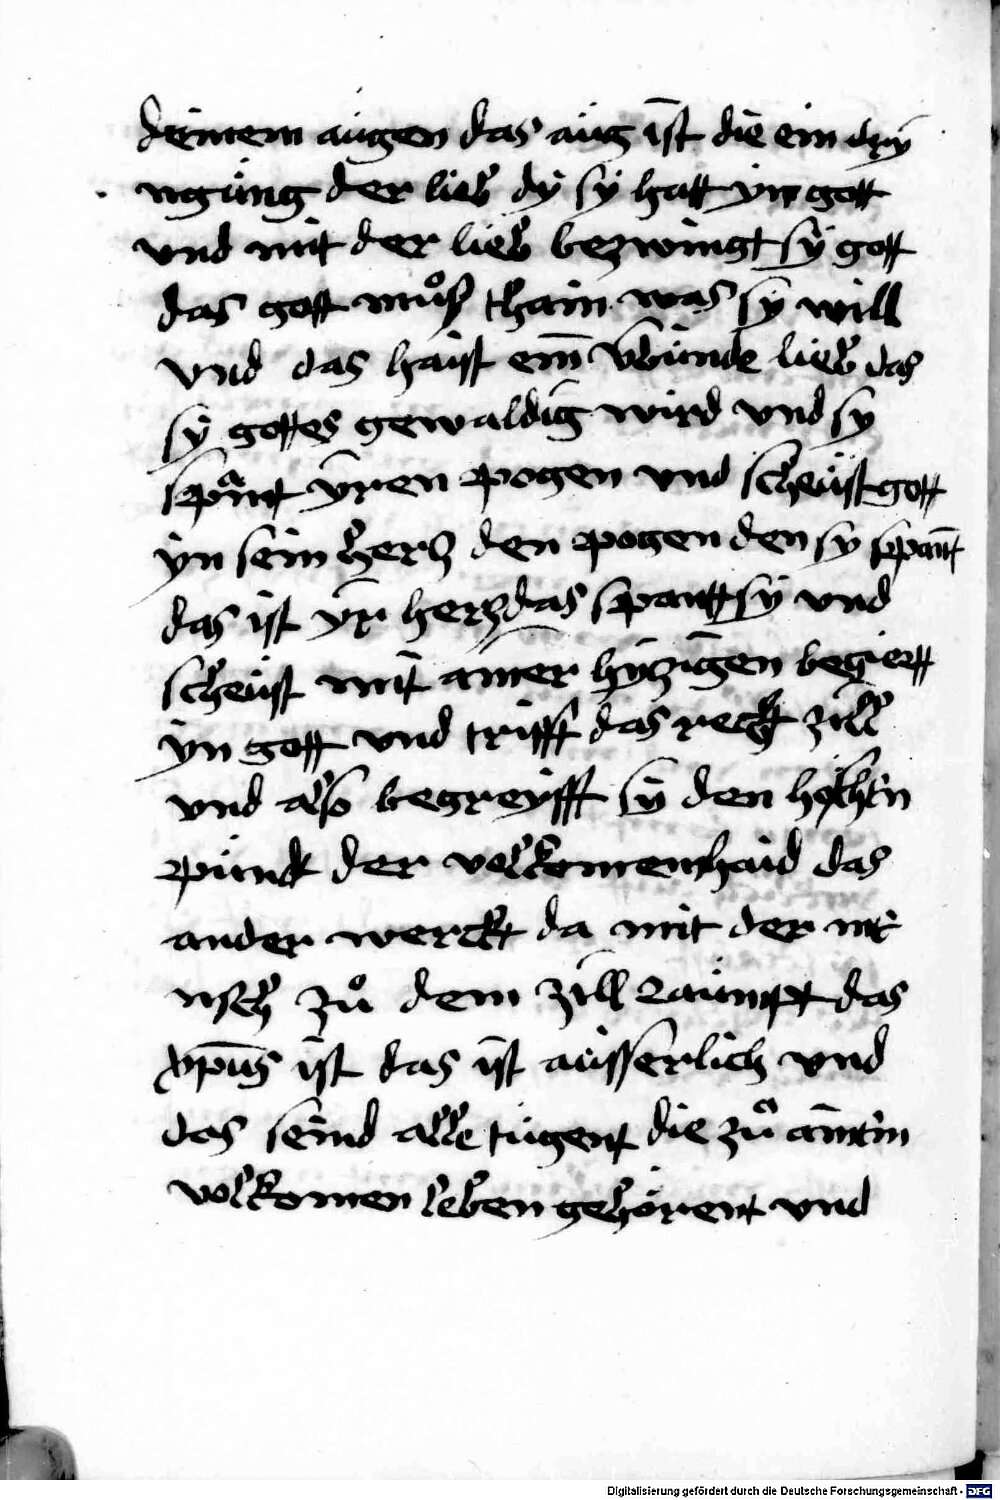 deinem augen das aug ist die ein driͤ
ngung der lieb dy sy hatt yn gott
vnd mit der lieb bezwingt sy gott
das gott muͦß thain was sy will
vnd das haist ein wunde lieb das
sy gottes gewaldig wird vnd sy
spant yren pogen vnd scheust gott
yn sein herz den pogen den sy spant
das ist yr herz das spantt sy vnd
scheust mit ainer hyzigen begiertt
yn gott vnd trifft das recht zill
vnd also begreyfft sy den hochstn
punck der volkomenhaid das
ander werckt da mit der me
nsch zuͦ dem zill raumpt das
xpus ist das ist ausserlich vnd
das seind alle tugent die zuͦ aim
volkomen leben gehorent vnd
Digitalisierung gefördert durch die Deutsche Forschungsgemeinschaft - DFG